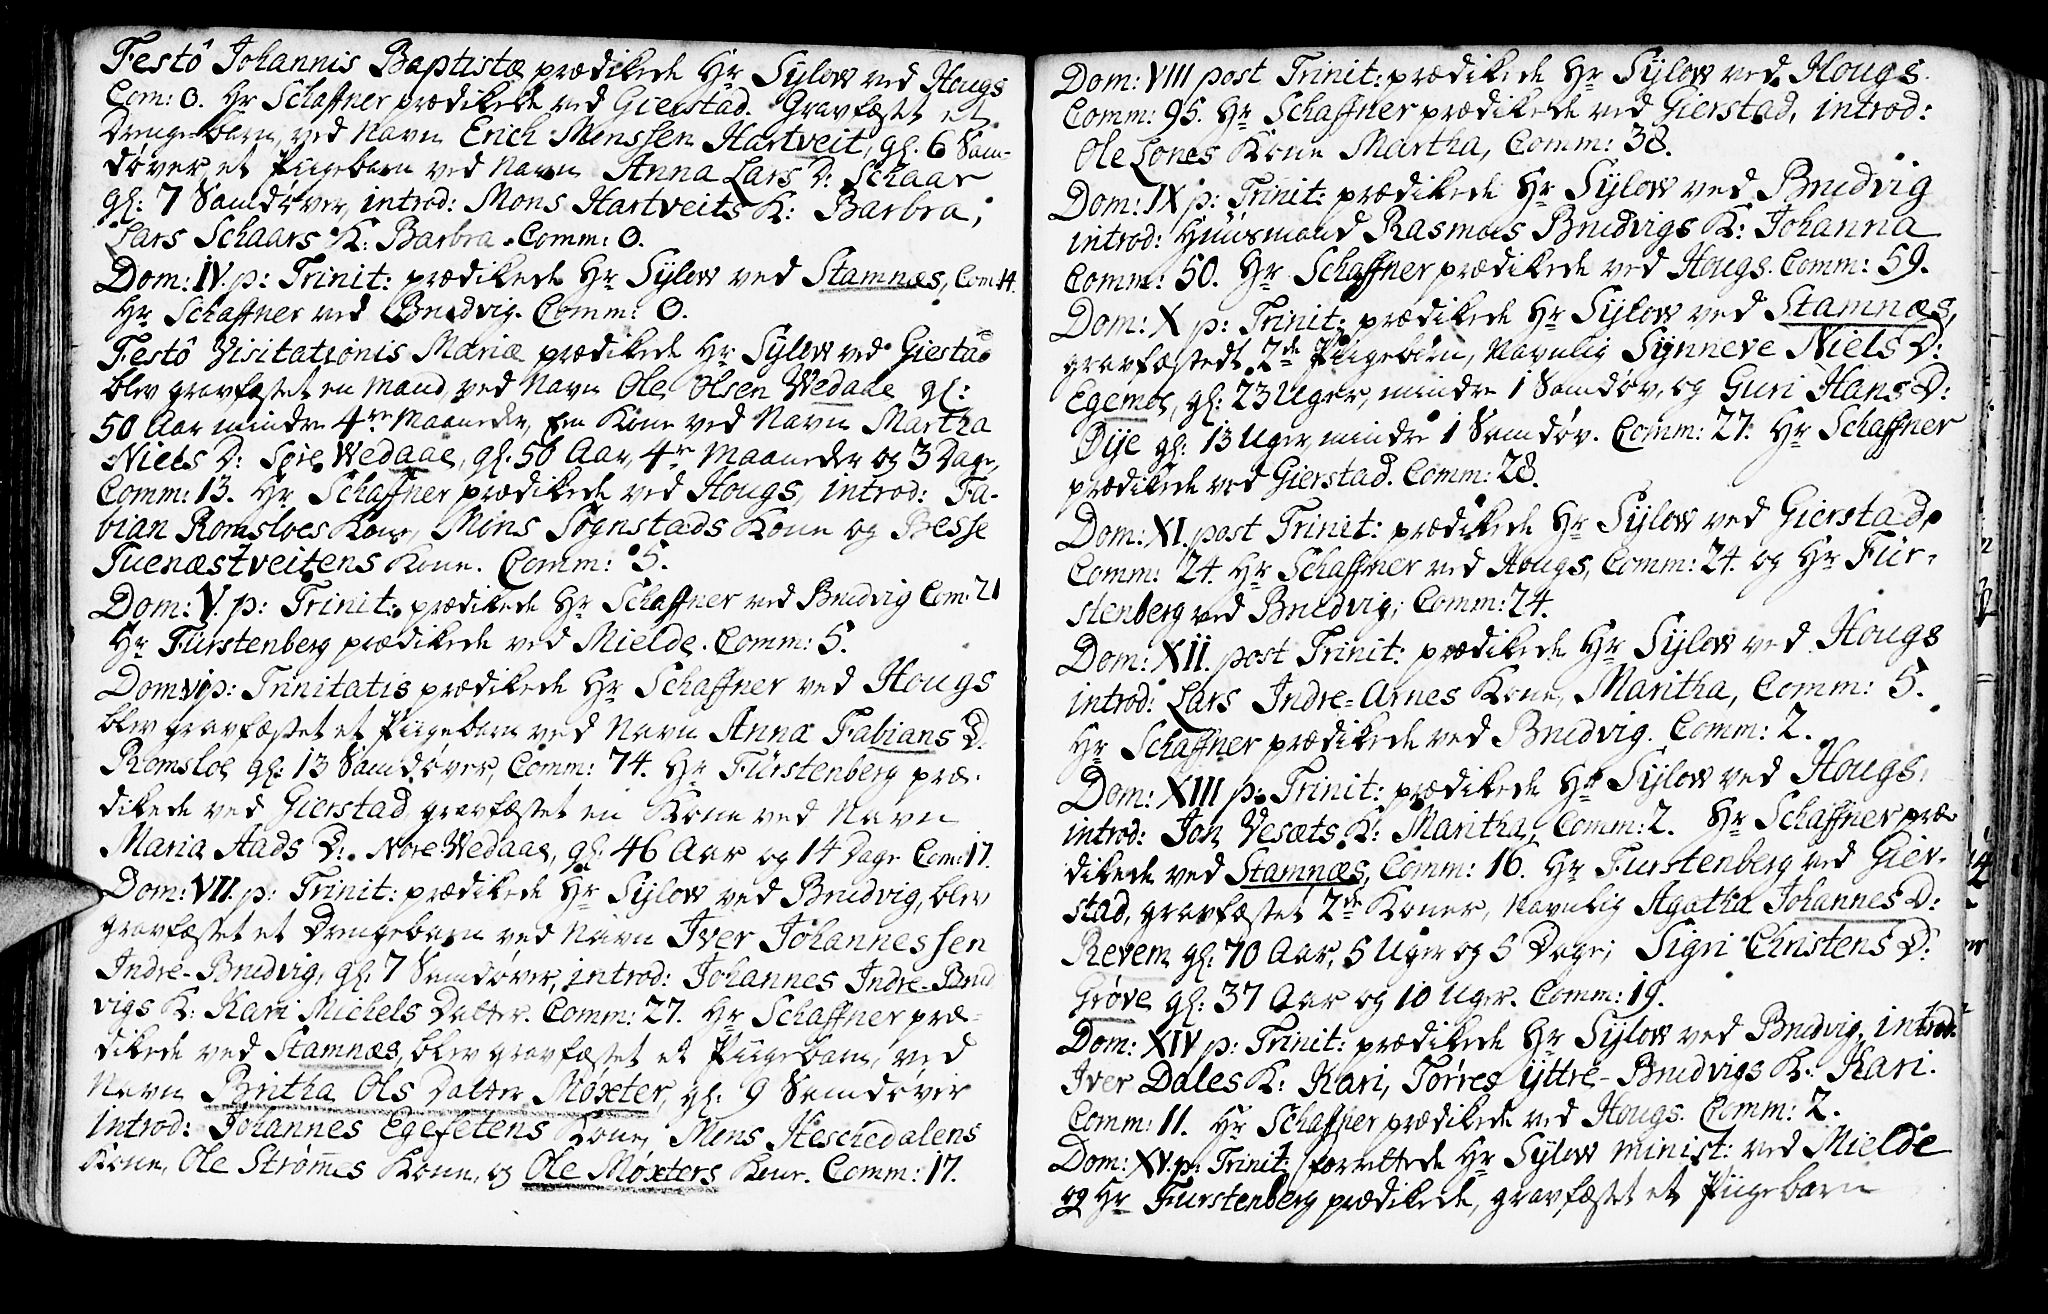 Festô Johannis Baptistæ prædikede Hr Sylow ved Hougs
Com: 0. Hr Schaffner prædikede ved Gierstad. Gravfæstet et
Drengebarn, ved Navn Erich Monssen Hartveit, gl. 6 Sam-
døver, et Piigebarn ved Navn Anna Lars D: Schaar
gl: 7 Samdøver, introd: Mons Hartveits K: Barbra;
Lars Schaars K: Barbra. Comm: 0.
Dom: IV. p: Trinit: prædikede Hr Sylow ved Stamnæs, Com: 14.
Hr Schaffner ved Brudvig. Comm: 0.
Festô Visitationis Mariæ prædikede Hr Sylow ved Giersta
blev gravfæstet en Mand ved Navn Ole Olsen Wedaae gl:
50 Aar mindre 4re Maaneder, En Kone ved Navn Martha
Niels D: Søre Wedaae, gl. 50 Aar, 4re Maaneder og 3 Dage,
Comm: 13. Hr Schaffner prædikede ved Hougs, introd: Fa-
bian Romsloes Kone, Mons Sognstads Kone og Besse
Tuenæstveitens Kone. Comm: 5.
Dom: V. p: Trinit: prædikede Hr Schaffner ved Brudvig Com: 21
Hr Fürstenberg prædikede ved Mielde. Comm: 5.
Dom: VI p: Trinitatis prædikede Hr Schaffner ved Hougs
blev gravfæstet et Piigebarn ved Navn Anna Fabians D.
Romsloe gl: 13 Samdøver, Comm: 74. Hr Fürstenberg præ-
dikede ved Gierstad gravfæstet en Kone ved Navn
Maria Aads D: Nore Wedaae, gl: 46 Aar og 14 Dage Com: 17.
Dom: VII. p: Trinit: prædikede Hr Sylow ved Brudvig, blev
gravfæstet et Drengebarn ved Navn Iver Johannessen
Indre-Brudvig, gl: 7 Samdøver, introd: Johannes Indre-Brud
vigs K: Kari Michels Datter. Comm: 27. Hr Schaffner præ-
dikede ved Stamnæs, blev gravfæstet et Piigebarn, ved
Navn Britha Ols Datter Møxter, gl: 9 Samdøver
introd: Johannes Egefetens Kone, Mons Heschedalens
Kone, Ole Strømes Kone, og Ole Møxters Kone. Comm: 17.
Dom: VIII post Trinit: prædikede Hr Sylow ved Hougs.
Comm: 95. Hr Schaffner prædikede ved Gierstad, introd:
Ole Lones Kone Martha, Comm: 38.
Dom: IX p: Trinit: prædikede Hr Sylow ved Brudvig
introd: Huusmand Rasmus Brudvigs K: Johanna
Comm: 50. Hr Schaffner prædikede ved Hougs. Comm: 59.
Dom: X p: Trinit: prædikede Hr Sylow ved Stamnæs,
gravfæstedt 2de Piigebørn, Navnlig Synneve Niels D:
Egemoe, gl: 23 Uger, mindre 1 Samdøv, og Guri Hans D:
Øije gl: 13 Uger, mindre 1 Samdøv. Comm: 27. Hr Schaffner
prædikede ved Gierstad. Comm: 28.
Dom: XI. post Trinit: prædikede Hr Sylow ved Gierstad,
Comm: 24. Hr Schaffner ved Hougs, Comm: 24. og Hr Für-
stenberg ved Brudvig; Comm: 24.
Dom: XII. post Trinit: prædikede Hr Sylow ved Hougs
introd: Lars Indre-Arnes Kone, Maritha, Comm: 5.
Hr Schaffner prædikede ved Brudvig. Comm: 2.
Dom: XIII p: Trinit: prædikede Hr Sylow ved Hougs,
introd: Jon Vesæts K: Maritha, Comm: 2. Hr Schaffner præ-
dikede ved Stamnæs, Comm: 16. Hr Furstenberg ved Gier-
stad, gravfæstet 2de Koner, Navnlig Agatha Johannes D:
Revem gl: 70 Aar, 5 Uger og 5 Dage; Sigri Christens D:
Grøve gl: 37 Aar og 10 Uger. Comm: 19.
Dom: XIV p: Trinit: prædikede Hr Sylow ved Brudvig, introd:
Iver Dales K: Kari, Tørres yttre-Brudvigs K: Kari.
Comm: 11. Hr Schaffner prædikede ved Hougs. Comm: 2.
Dom: XV. p: Trinit: forrettede Hr Sylow minist: ved Mielde
og Hr Furstenberg prædikede, gravfæstet et Piigebarn